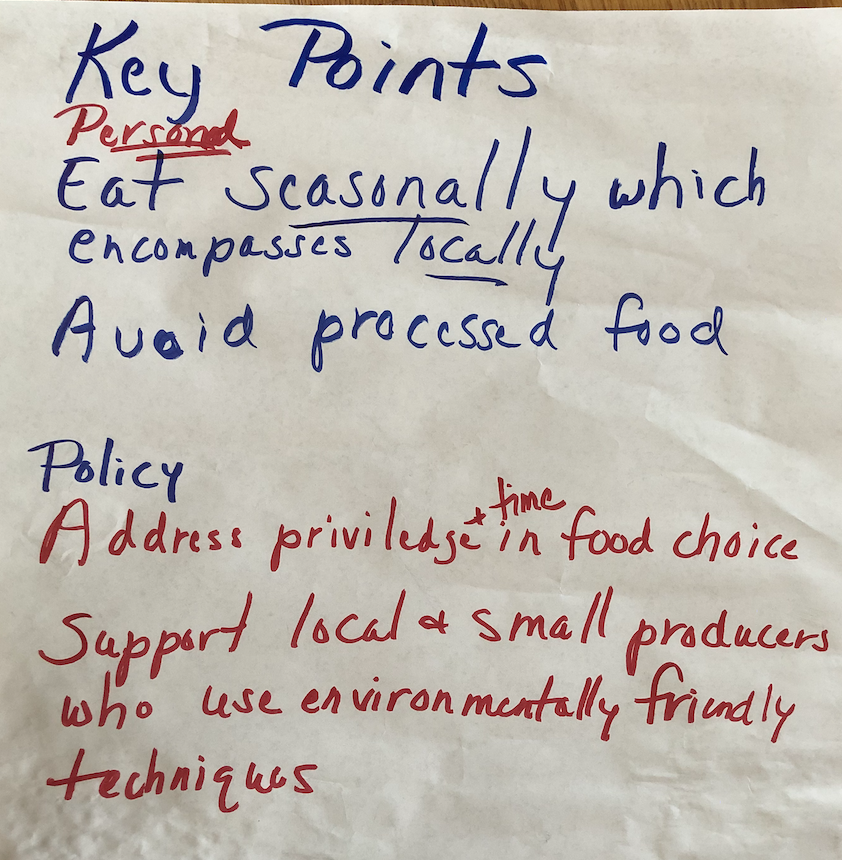 Key Points
Personal
Eat seasonally which
encompasses locally
Avoid processed food
Policy
Address priviledge + time in food choice
Support local & small producers
who use environmentally friendly
techniques